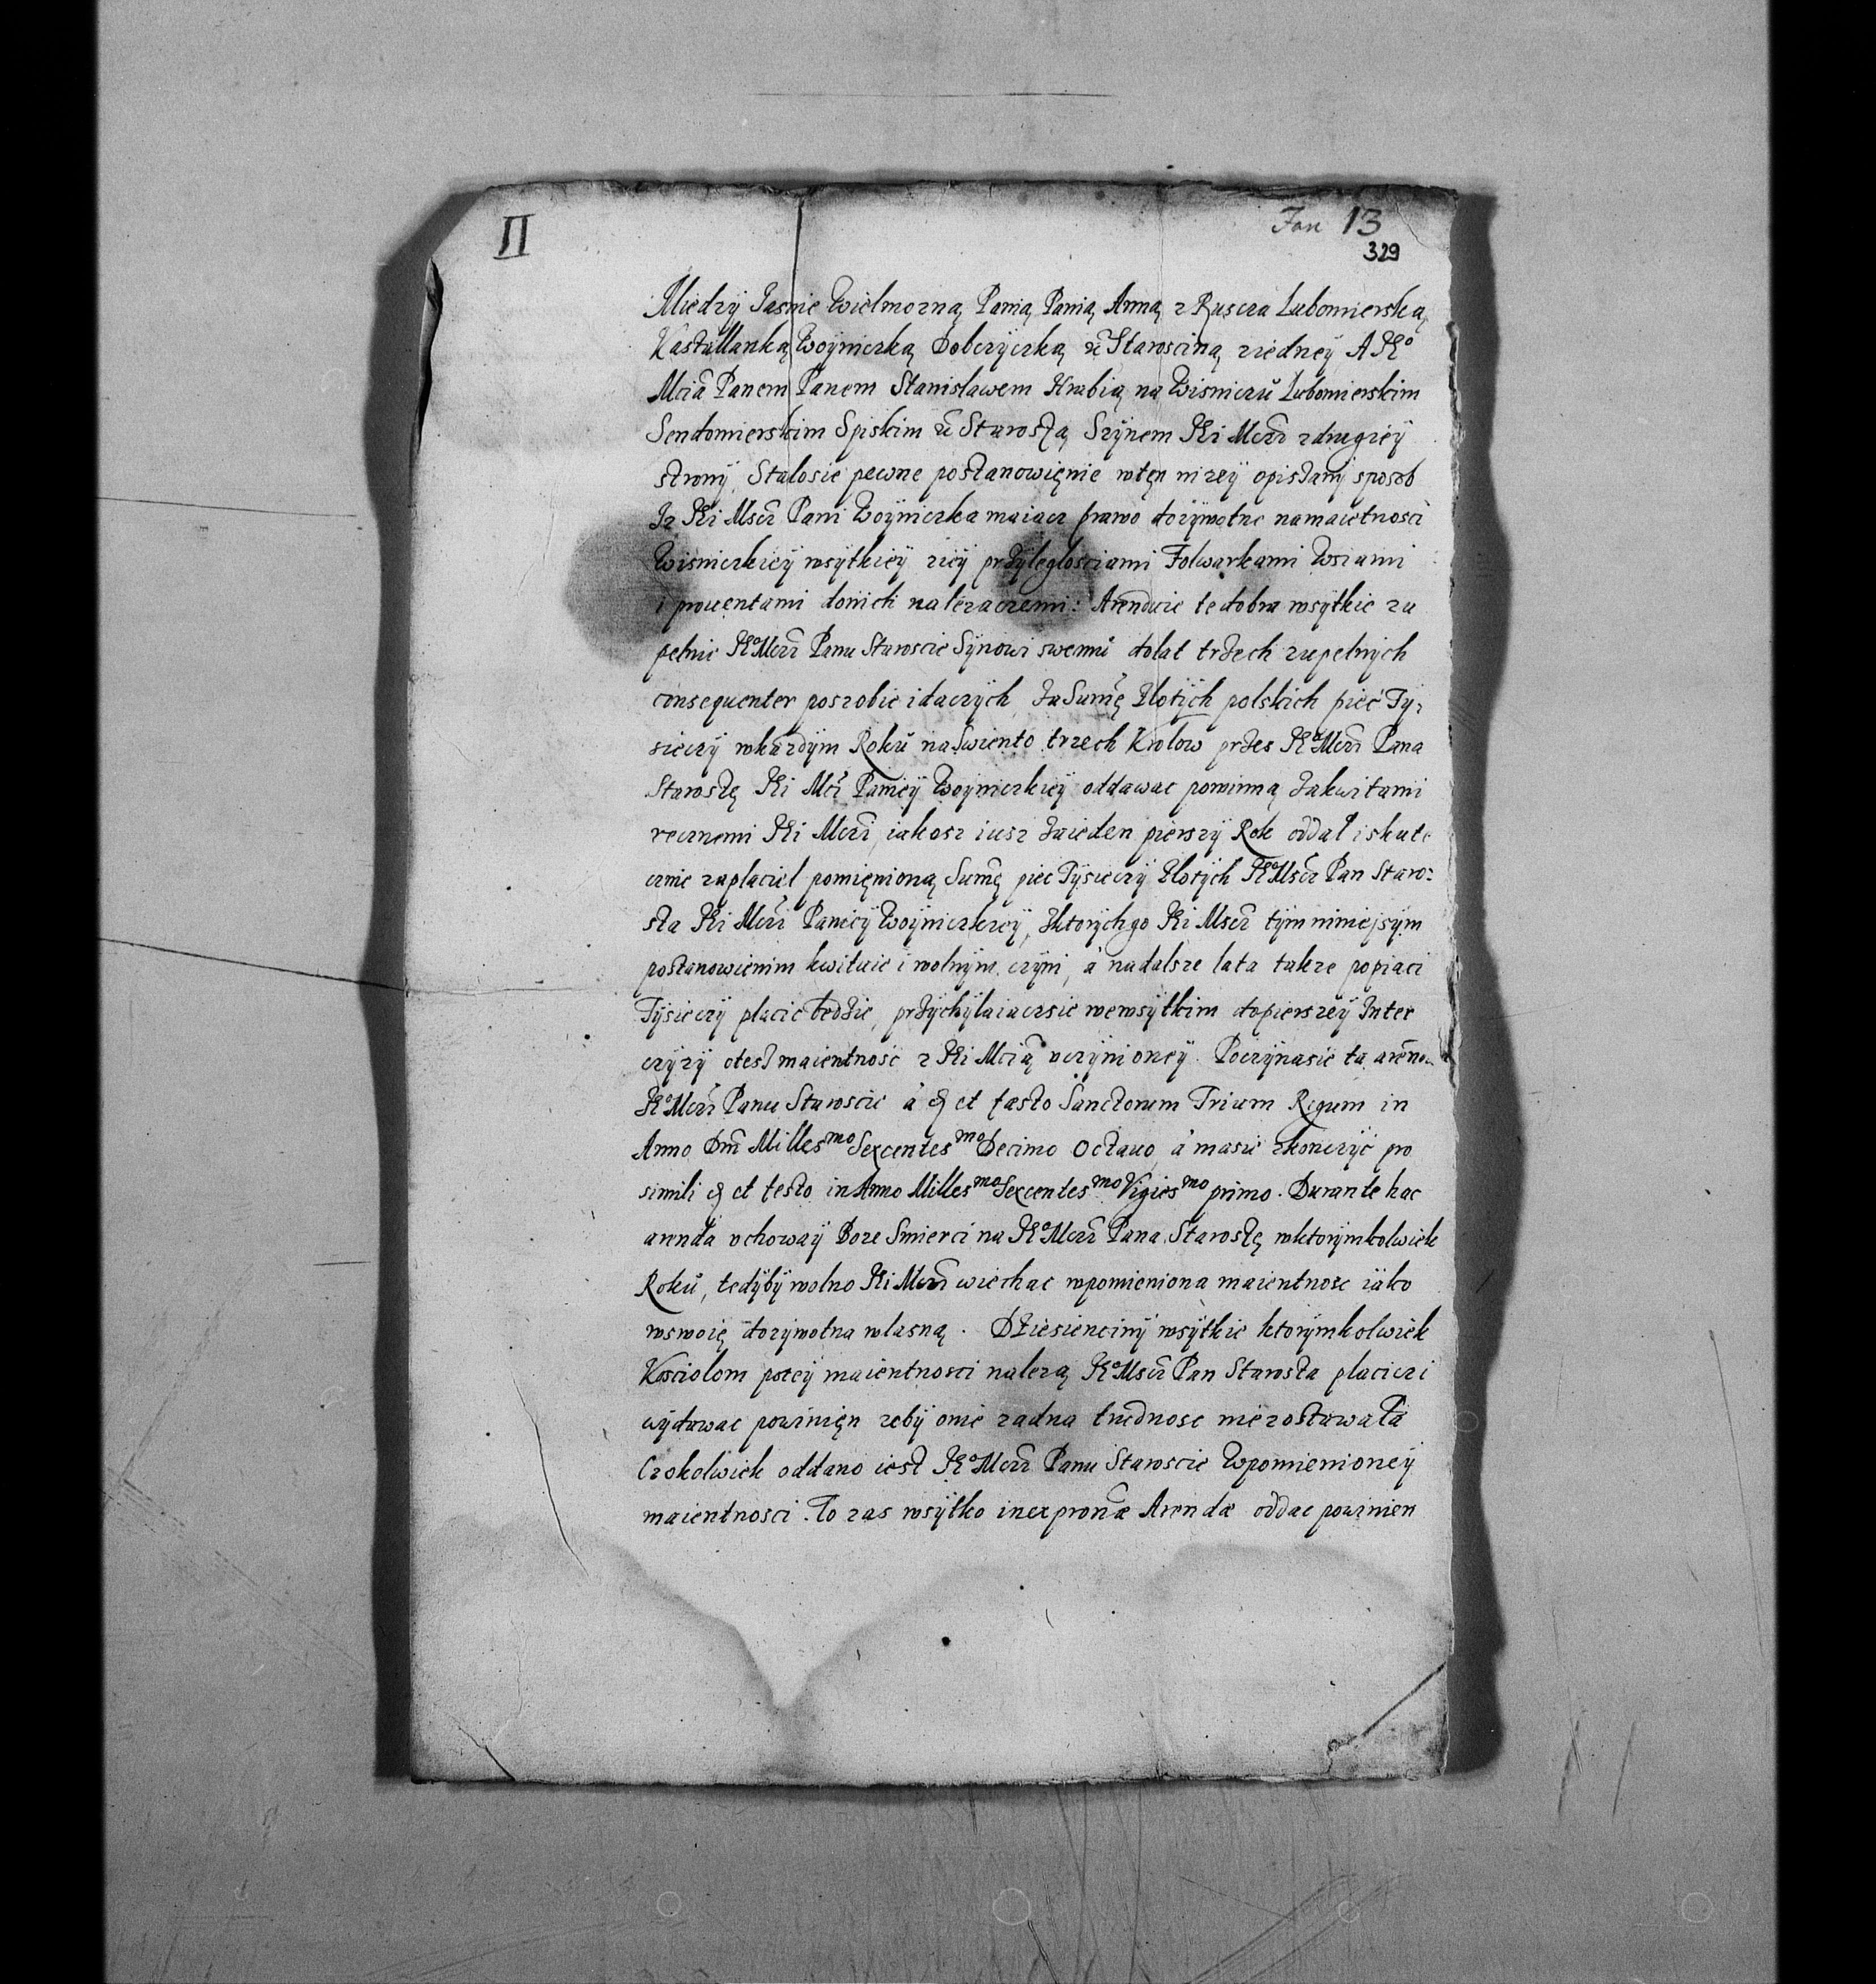 II
Jan 13
329
Miedzy Jasnie Wielmozną Panią Panią Anną z Ruscza Lubomierską
Kastellanką Woyniczką Dobczyczką etc Starosciną ziedney A JKo
Mcią Panem Panem Stanisławem Hrabią na Wisniczu Lubomierskim
Sendomierskim Spiskim etc Starostą Szynem JKi Mczi zdrugiey
strony Stalosie pewne postanowięnie wtęn nizey opisany sposob
Iz JKi Mscz Pani Woyniczka maiacz prawo dozywotne namaietnosci
Wisniczkiey wsytkiey ziey przyleglosciami Folwarkami Wsiami
i prowentami donich nalezaczemi: Arenduie tedobra wsytkie zu
pelnie JKoMczi Panu Staroscie Synowi swemu dolat trzech zupelnych
consequenter poszobie idaczych, ZaSumę Zlotych polskich pięć Ty,
sieczy wkazdym Roku naSwiento trzech Krolow przes JKoMczi Pana
Starostę JKi Mci Paniey Woyniczkiey oddawac powinną Zakwitami
recznemi JKi Mczi, iakosz iusz Zaieden pierszy Rok oddal iskute
cznie zaplaciel pomięnioną Sumę piec Tysieczy Zlotych JKoMscz Pan Staro:
sta JKi Mczi Paniey Woyniczkiey, Zktorychgo JKi Mscz tym niniejsym
postanowienim kwituie i wolnym czyni, à nadalsze lata takze popiaci
Tysieczy placic bedzie, przychylaiaczsie wewsytkim dopierszey Inter
czyzy otesz maientnosc z JKi Mcią uczynioney. Poczynasie ta arend
JKoMczi Panu Staroscie à et festo Sanctorum Trium Regum in
Anno Dni Millesmo Sexcentesmo Decimo Octauo, à masie zkonczyc po
simili et festo in Anno Millesmo Sexcentesmo Vigiesmo primo. Durante hac
arenda uchoway Boze Smierci na JKoMczi Pana Starostę wktorymkolwiek
Roku, tedyby wolno JKi Mczi wiechac wpomieniona maientnosc iako
wswoię dozywotna wlasną. Dziesienciny wsytkie ktorymkolwiek
Kosciolom ptey maientnosci nalezą JKoMscz Pan Starosta placiczi
wydawac powinięn zeby onie zadna trudnosc niezostawala
Czokolwiek oddano iest JKoMczi Panu Staroscie Wpomienioney
maientnosci. To zas wsytko inexpronæ Arendæ oddac powinien